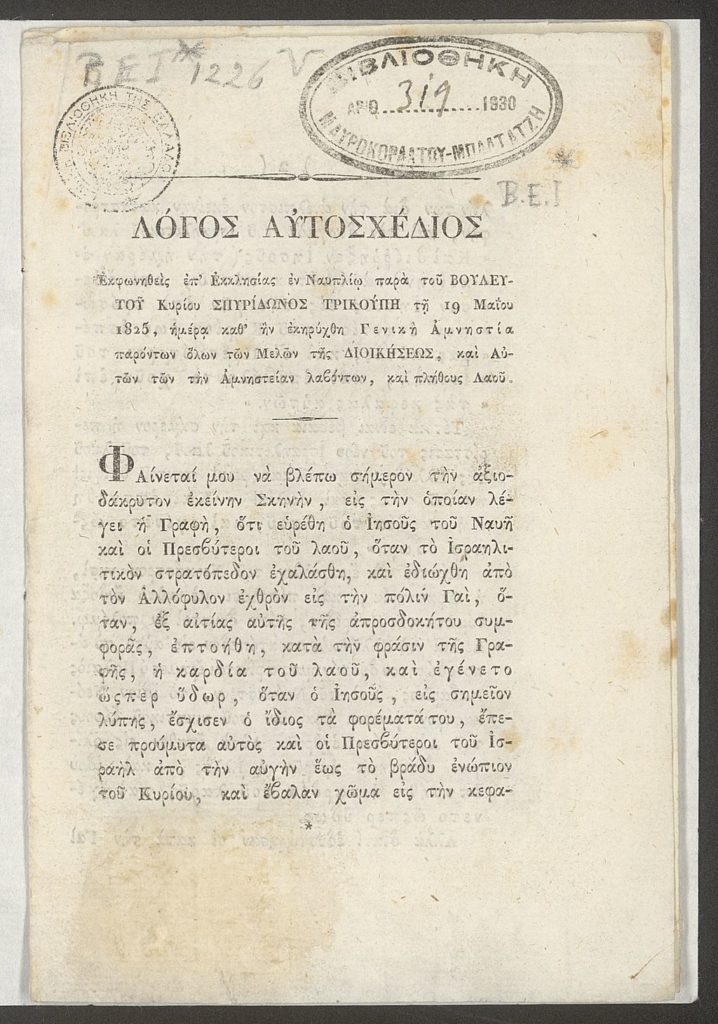 B.E.I * 1226
ΒΙΒΛΙΟΘΗΚΗ
ΑΡΙΘ. 319 1930
ΜΑΥΡΟΚΟΡΔΑΤΟΥ-ΜΠΑΛΤΑΤΖΗ
ΒΙΒΛΙΟΘΗΚΗ ΤΗΣ ΕΛΛΑΔΟΣ
*
B.E.I
ΛΌΓΟΣ ΑΥ̓ΤΟΣΧΈΔΙΟΣ
Ἐκφωνηθεὶς ἐπ' Ἐκκλησίας ἐν Ναυπλίῳ παρὰ τοῦ ΒΟΥΛΕΥ-
ΤΟΥ͂ Κυρίου ΣΠΥΡΊΔΩΝΟΣ ΤΡΙΚΟΎΠΗ τῇ 19 Μαΐου
1825, ἡμέρᾳ καθ' ἣν ἐκηρύχθη Γενικὴ Ἀμνηστία
παρόντων ὅλων τῶν Μελῶν τῆς ΔΙΟΙΚΉΣΕΩΣ, καὶ Αὐ-
τῶν τῶν τὴν Ἀμνηστείαν λαβόντων, καὶ πλήθους Λαοῦ.
ΦΑίνεταί μου νὰ βλέπω σήμερον τὴν ἀξιο-
δάκρυτον ἐκείνην Σκηνὴν, εἰς τὴν ὁποίαν λέ-
γει ἡ Γραφὴ, ὅτι εὑρέθη ὁ Ἰησοῦς τοῦ Ναυῆ
καὶ οἱ Πρεσβύτεροι τοῦ λαοῦ, ὅταν τὸ Ἰσραηλι-
τικὸν στρατόπεδον ἐχαλάσθη, καὶ ἐδιώχθη ἀπὸ
τὸν Ἀλλόφυλον ἐχθρὸν εἰς τὴν πόλιν Γαὶ, ὅ-
ταν, ἐξ αἰτίας αὐτῆς τῆς ἀπροσδοκήτου συμ-
φορᾶς, ἐπτοήθη, κατὰ τὴν φράσιν τῆς Γρα-
φῆς, ἡ καρδία τοῦ λαοῦ, καὶ ἐγένετο
ὥςπερ ὕδωρ, ὅταν ὁ Ἰησοῦς, εἰς σημεῖον
λύπης, ἔσχισεν ὁ ἴδιος τὰ φορέματά του, ἔπε-
σε προύμυτα αὐτὸς καὶ οἱ Πρεσβύτεροι τοῦ Ἰσ-
ραὴλ ἀπὸ τὴν αὐγὴν ἕως τὸ βράδυ ἐνώπιον
τοῦ Κυρίου, καὶ ἔβαλαν χῶμα εἰς τὴν κεφα-
*